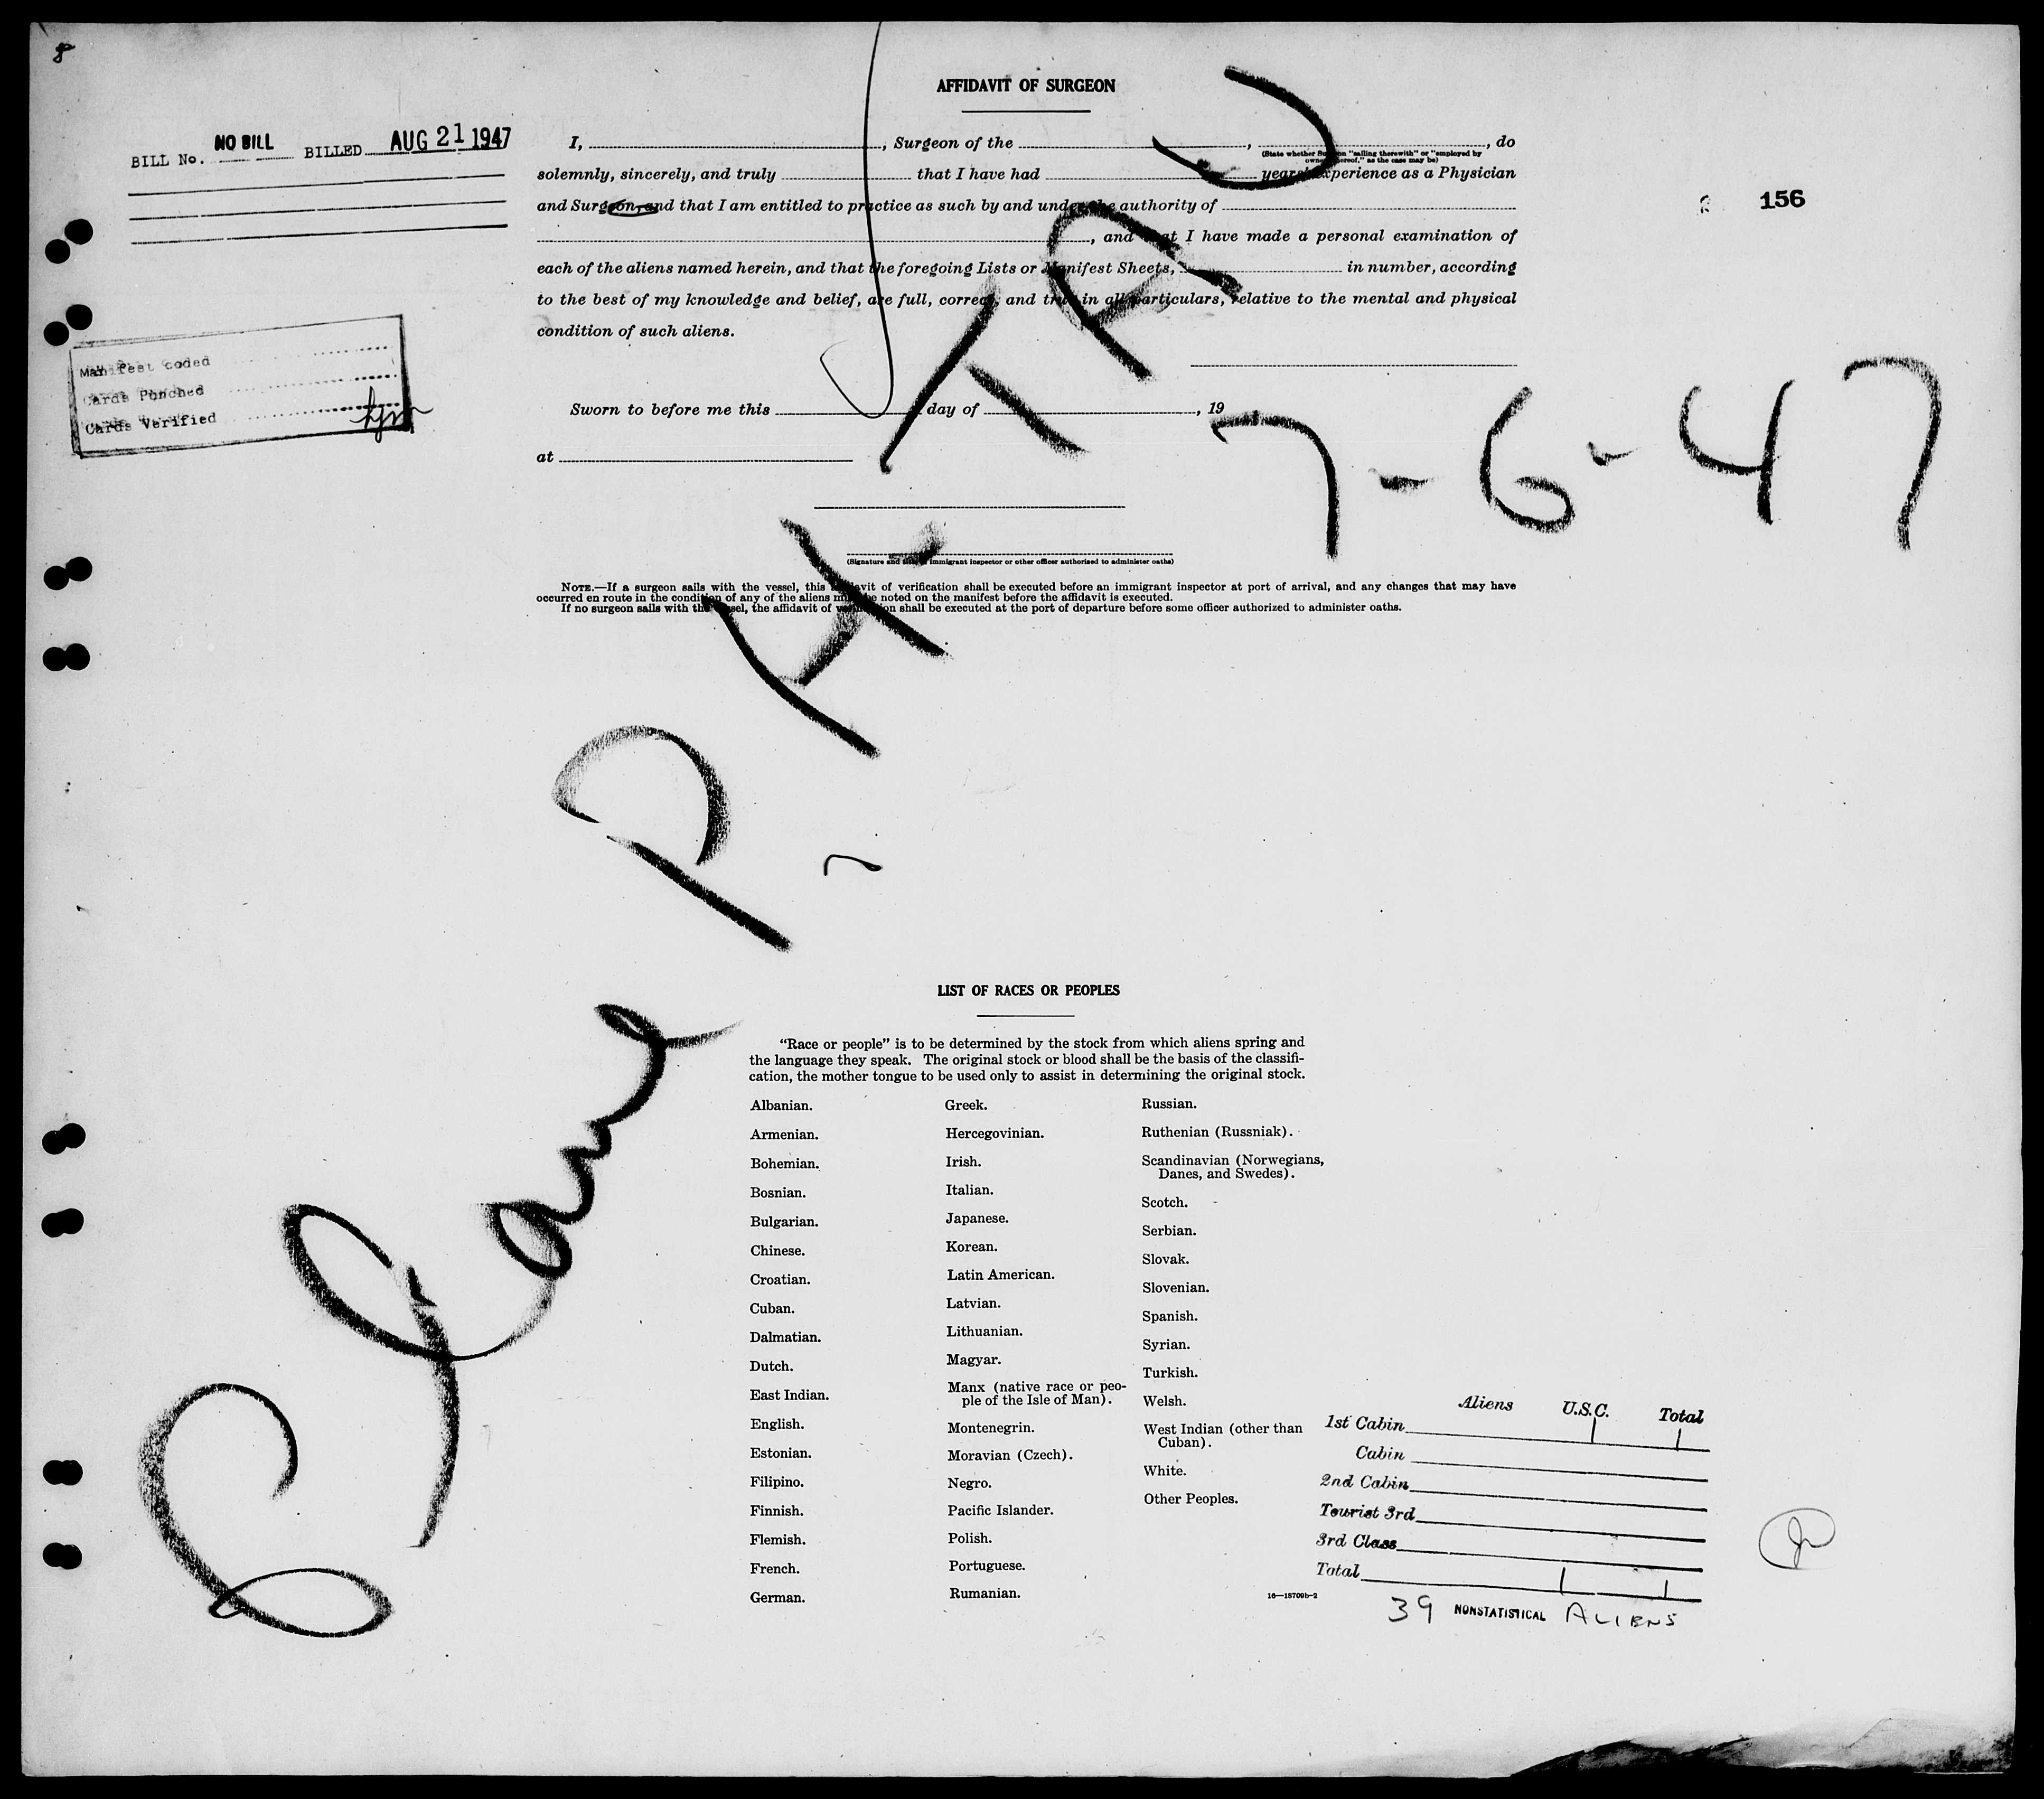 8
AFFIDAVIT OF SURGEON
BILL No. NO BILL BILLED AUG 21 1947
I, , Surgeon of the , , do
(State whether Surgeon "sailing therewith" or "employed by
owners thereof," as the case may be)
solemnly, sincerely, and truly that I have had years' experience as a Physician
and Surgeon, and that I am entitled to practice as such by and under the authority of
156
, and that I have made a personal examination of
each of the aliens named herein, and that the foregoing Lists or Manifest Sheets, in number, according
to the best of my knowledge and belief, are full, correct, and true in all particulars, relative to the mental and physical
condition of such aliens.
Manifest coded
Cards Punched
Cards Verified
Sworn to before me this day of , 19
7-6-47
at
(Signature and title of immigrant inspector or other officer authorized to administer oaths)
NOTE.—If a surgeon sails with the vessel, this affidavit of verification shall be executed before an immigrant inspector at port of arrival, and any changes that may have
occurred en route in the condition of any of the aliens must be noted on the manifest before the affidavit is executed.
If no surgeon sails with the vessel, the affidavit of verification shall be executed at the port of departure before some officer authorized to administer oaths.
LIST OF RACES OR PEOPLES
"Race or people" is to be determined by the stock from which aliens spring and
the language they speak. The original stock or blood shall be the basis of the classifi-
cation, the mother tongue to be used only to assist in determining the original stock.
Albanian.
Armenian.
Bohemian.
Bosnian.
Bulgarian.
Chinese.
Croatian.
Cuban.
Dalmatian.
Dutch.
East Indian.
English.
Estonian.
Filipino.
Finnish.
Flemish.
French.
German.
Greek.
Hercegovinian.
Irish.
Italian.
Japanese.
Korean.
Latin American.
Latvian.
Lithuanian.
Magyar.
Manx (native race or peo-
ple of the Isle of Man).
Montenegrin.
Moravian (Czech).
Negro.
Pacific Islander.
Polish.
Portuguese.
Rumanian.
Russian.
Ruthenian (Russniak).
Scandinavian (Norwegians,
Danes, and Swedes).
Scotch.
Serbian.
Slovak.
Slovenian.
Spanish.
Syrian.
Turkish.
Welsh.
West Indian (other than
Cuban).
White.
Other Peoples.
16—18709b-2
Aliens U.S.C. Total
1st Cabin 1 1
Cabin
2nd Cabin
Tourist 3rd
3rd Class
Total 1 1
39 NONSTATISTICAL ALIENS